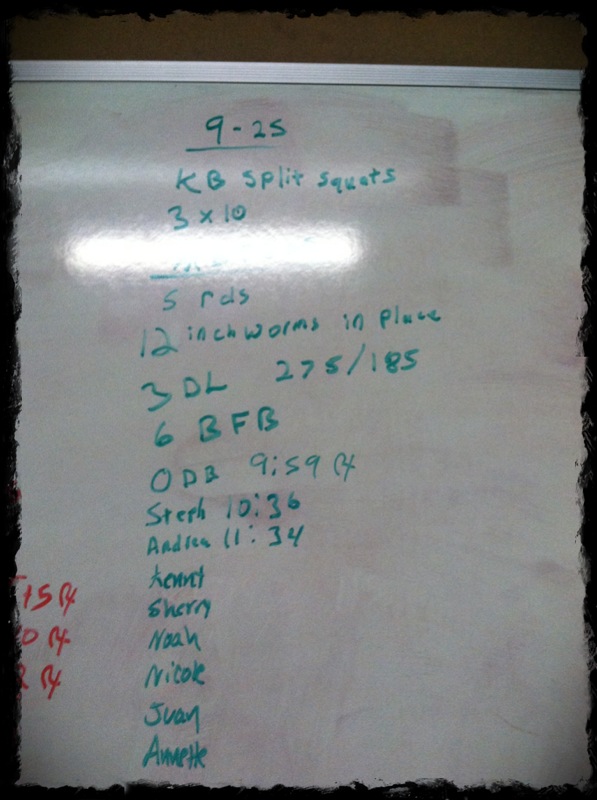 9-25
KB Split Squats
3 x 10
5 rds
12 inchworms in place
3 DL 275/185
6 BFB
ODB 9:59 Rx
Steph 10:36
Andrea 11:34
Kenny
Sherry
Noah
Nicole
Juan
Annette